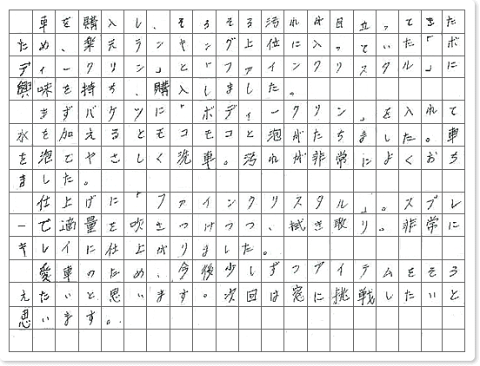 車を購入し、そろそろ汚れが目立ってきた
ため、楽天ランキング上位に入っていた「ボ
ディークリン」と「ファインクリスタル」に
興味を持ち、購入しました。
まずバケツに「ボディークリン」を入れて
水を加えるとモコモコと泡がたちました。車
を泡でやさしく洗車。汚れが非常によくおち
ました。
仕上げに「ファインクリスタル」。スプレ
ーで適量を吹きつけつつ、拭き取り。非常に
キレイに仕上がりました。
愛車のため、今後少しずつアイテムをそろ
えたいと思います。次回は窓に挑戦したいと
思います。